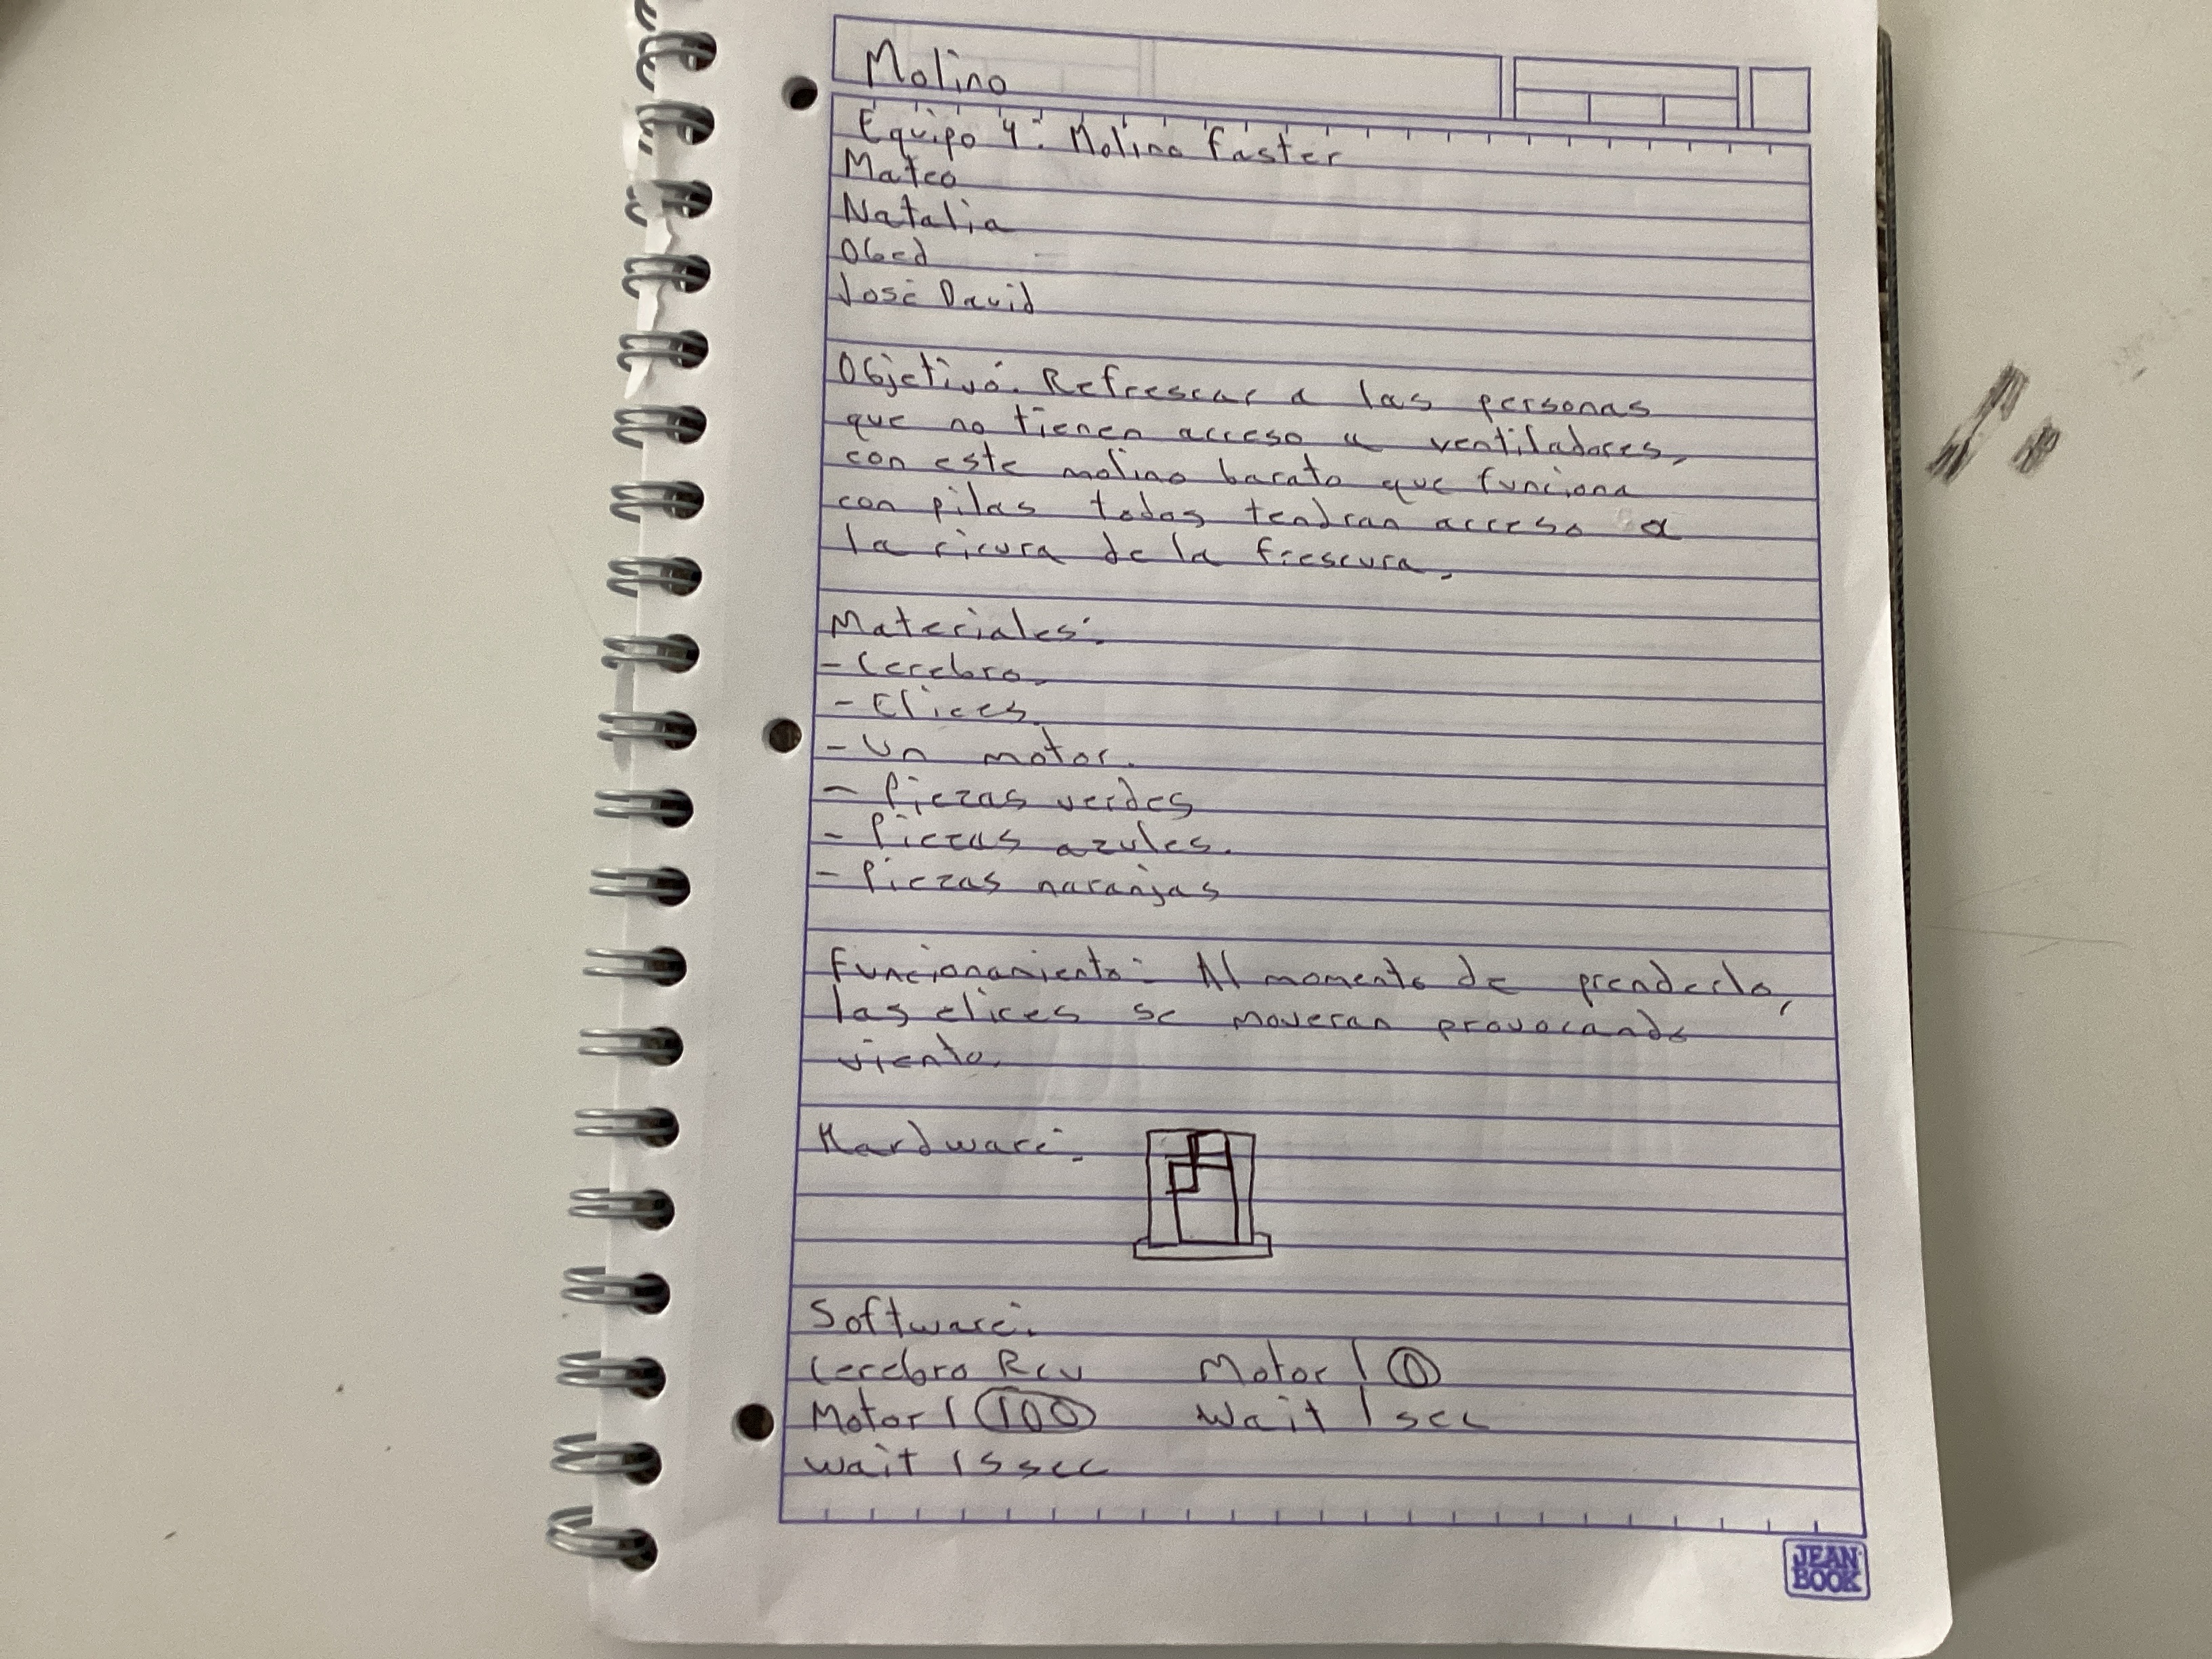 Molino
Equipo 4: Molino faster
Mateo
Natalia
Obed
José David
Objetivo: Refrescar a las personas
que no tienen acceso a ventiladores,
con este molino barato que funciona
con pilas todos tendran acceso a
la ricura de la frescura.
Materiales:
- Cerebro.
- Elices.
- Un motor.
- Piezas verdes
- Piezas azules.
- Piezas naranjas
Funcionamiento: Al momento de prenderlo,
las elices se moveran provocando
viento.
Hardware:
Software:
Cerebro Rcv Motor 1 0
Motor 1 100 Wait 1 sec
wait 15 sec
JEAN BOOK